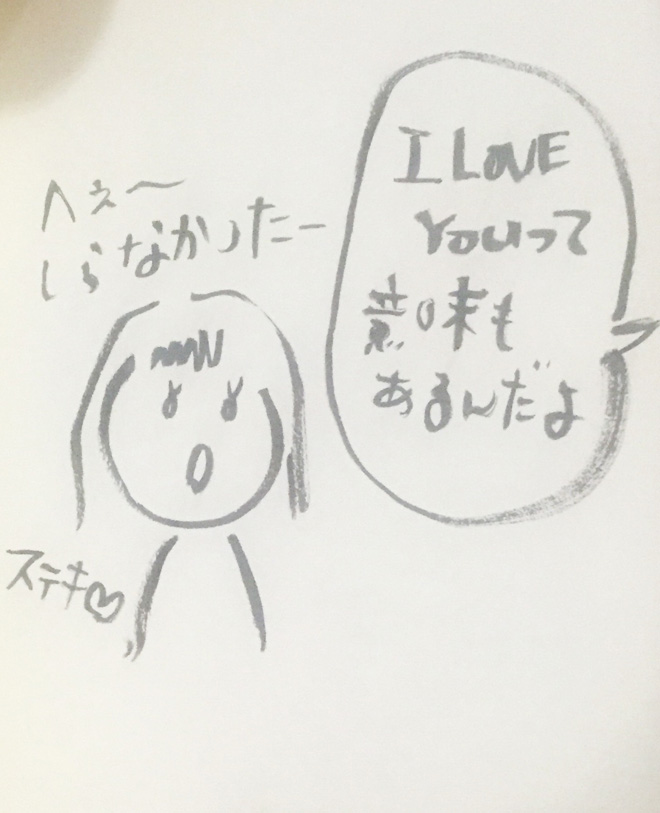 I LOVE
YOUって
意味も
あるんだよ
へぇ〜
しらなかったー
ステキ♡